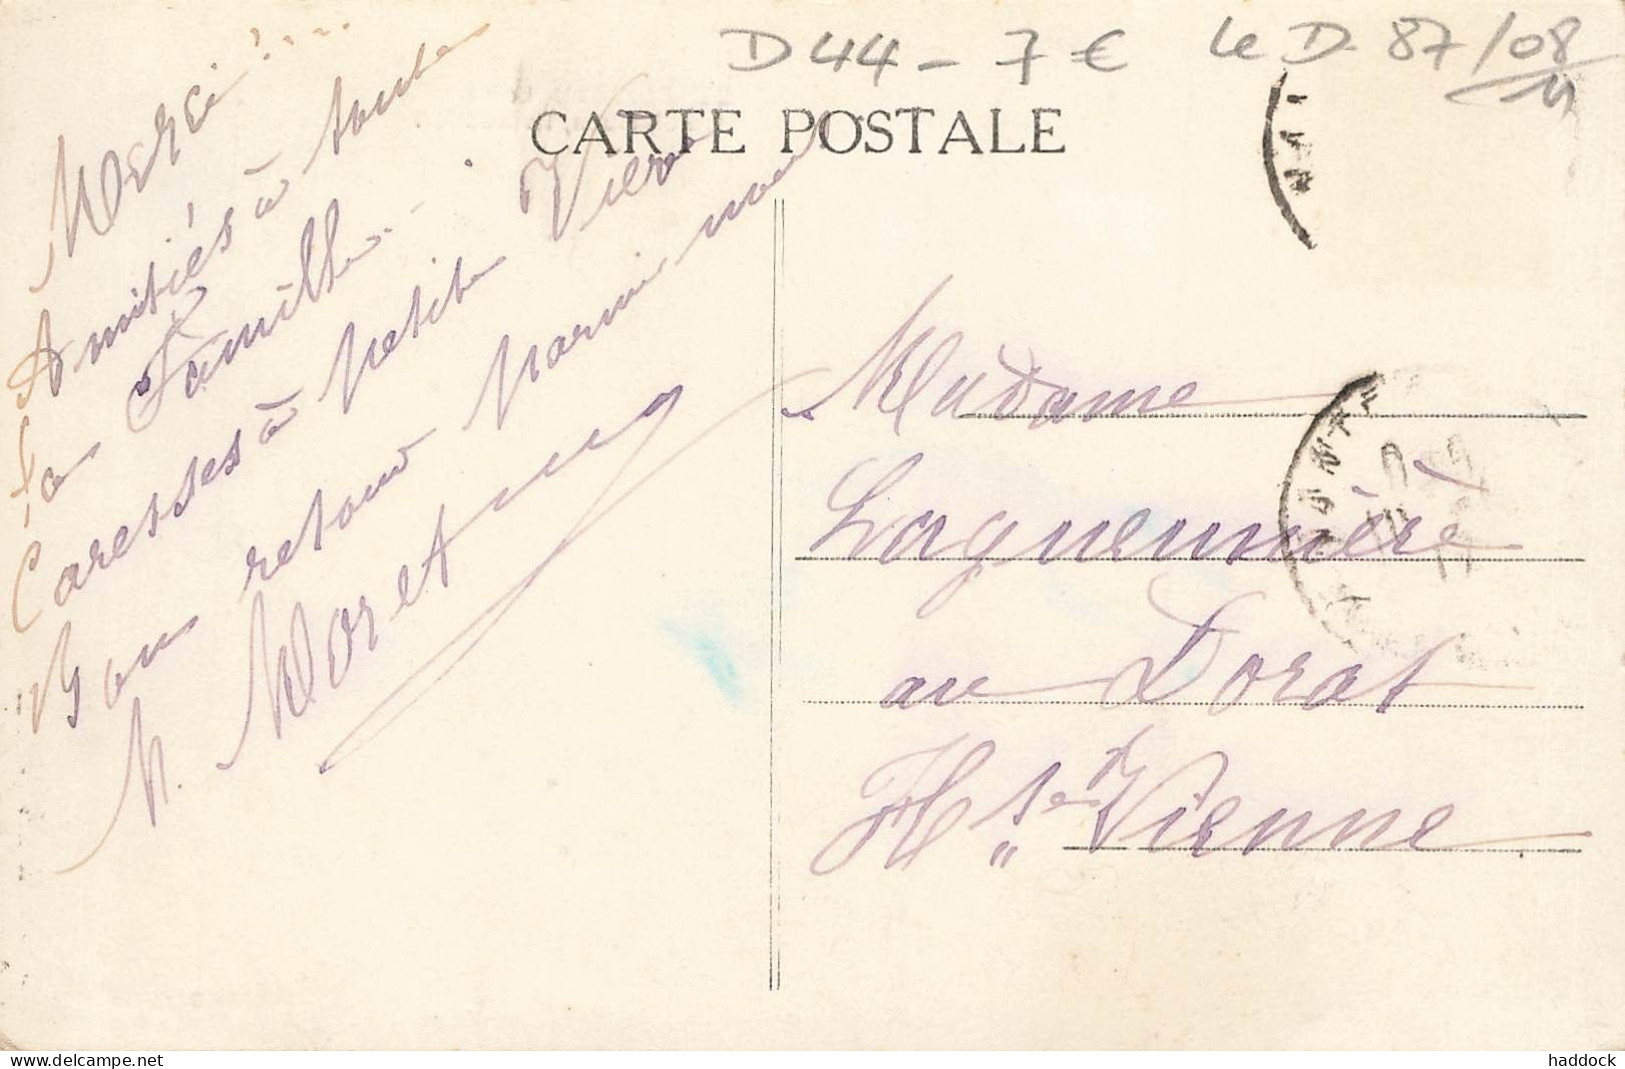 D44 - 7 € Le D 87/08
CARTE POSTALE
Merci !....
Amitiés à toute
ta famille.
Caresses à petite
Bon retour parmi nous
M. Moret
NANTES
Madame
Laguennière
au Dorat
Hte Vienne
www.delcampe.net
haddock